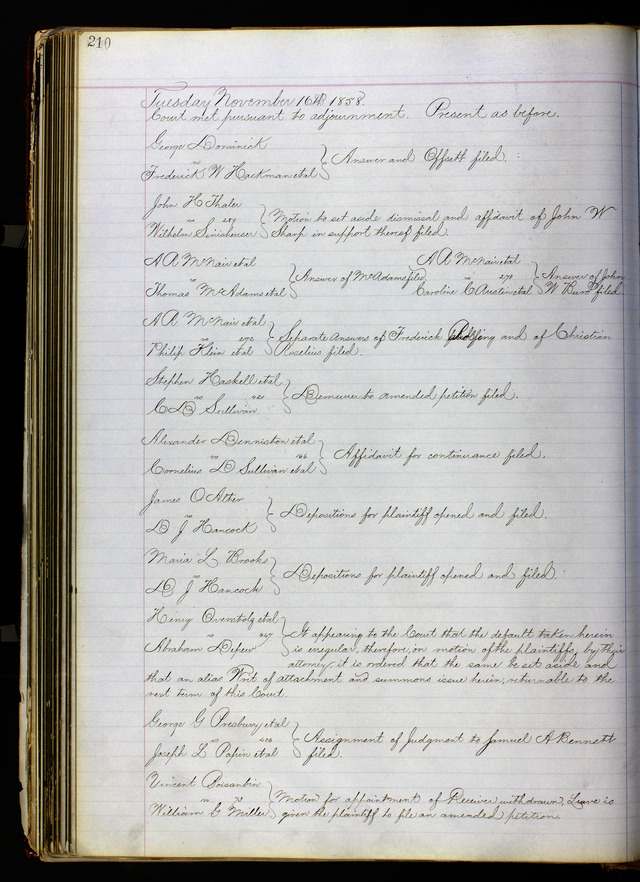 210
Tuesday November 16th 1858.
Court met pursuant to adjournment. Present as before.
George Dominick
vs
Frederick W Hackman etal } Answer and Offsett filed.
John H Thaler
vs 289
Wilhelm } Motion to set aside dismissal and affdavit of John W
Sharp in support thereof filed.
A A McNair etal
vs
Thomas McAdams etal } Answer of McAdams filed
A A McNair etal
vs 271
Caroline C Austin etal } Answer of John
W Burd filed.
A A McNair etal
vs 272
Philip Klein etal } Separate answers of Frederick and of Christian
Roselius filed.
Stephen Haskell etal
vs 421
C D Sullivan } Demurrer to amended petition filed.
Alexander Denniston etal
vs 166
Cornelius D Sullivan etal } Affidavit for continuance filed.
James O Alter
vs
D J Hancock } Depositions for plaintiff opened and filed.
Maria L Brooks
vs
D J Hancock } Depositions for plaintiff opened and filed.
Henry Overstolz etal
vs 247
Abraham Depew } It appearing to the Court that the default taken herein
is irregular, therefore, on motion of the plaintiffs, by their
attorney it is ordered that the same be set aside and
that an alias Writ of attachment and summons issue herein, returnable to the
next term of this Court.
George G Presbury etal
vs 403
Joseph L Papin etal } Assignment of Judgment to Samuel A Bennett
filed.
Vincent Boisaubin
vs
William G Miller } Motion for appointment of Receiver withdrawn, Leave is
given the plaintiff to file an amended petition.